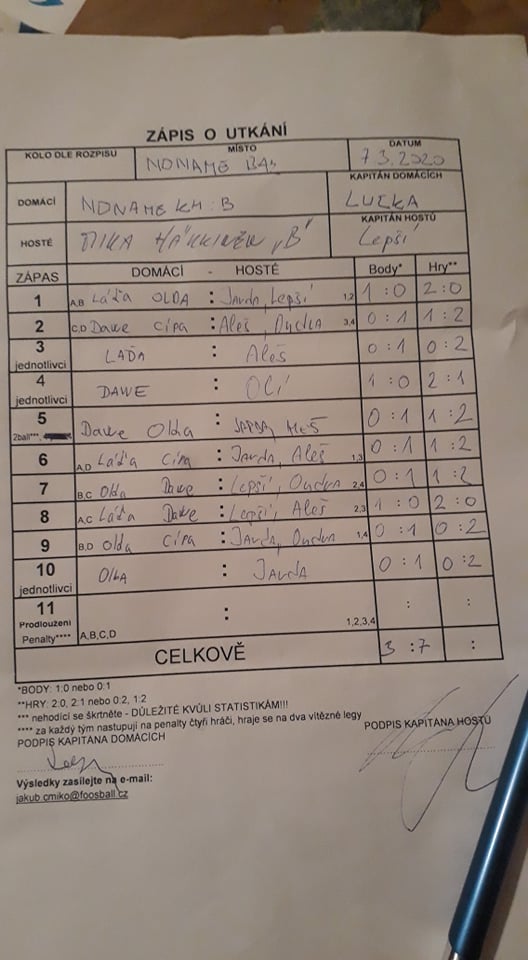 ZÁPIS O UTKÁNÍ
KOLO DLE ROZPISU MÍSTO DATUM
NONAME 7 3.2020
KAPITÁN DOMÁCÍCH
DOMÁCÍ NONAME KH: B LUCKA
KAPITÁN HOSTŮ
HOSTÉ MIKA HÄKKINEN „B" Lepší
ZÁPAS DOMÁCÍ - HOSTÉ Body* Hry**
1 A,B Láďa OLDA : Jarda, Lepší 1,2 1 : 0 2 : 0
2 C,D Dawe Cípa : Aleš, Ondra 3,4 0 : 1 1 : 2
3 jednotlivci LAĎA : Aleš 0 : 1 0 : 2
4 jednotlivci DAWE : 1 : 0 2 : 1
5 2ball***, Dawe Olda : 0 : 1 1 : 2
6 A,D Láďa Cípa : Jarda, Aleš 1,3 0 : 1 1 : 2
7 B,C Olda Dawe : Lepší, Ondra 2,4 0 : 1 1 : 2
8 A,C Láďa Dawe : Lepší, Aleš 2,3 1 : 0 2 : 0
9 B,D Olda Cípa : Jarda, Ondra 1,4 0 : 1 0 : 2
10 jednotlivci : JARDA 0 : 1 0 : 2
11 Prodloužení Penalty**** A,B,C,D : 1,2,3,4 : :
CELKOVĚ 3 : 7 :
*BODY: 1:0 nebo 0:1
**HRY: 2:0, 2:1 nebo 0:2, 1:2
*** nehodící se škrtněte - DŮLEŽITÉ KVŮLI STATISTIKÁM!!!
**** za každý tým nastupují na penalty čtyři hráči, hraje se na dva vítězné legy
PODPIS KAPITÁNA DOMÁCÍCH PODPIS KAPITÁNA HOSTŮ
Výsledky zasílejte na e-mail:
jakub.cmiko@foosball.cz